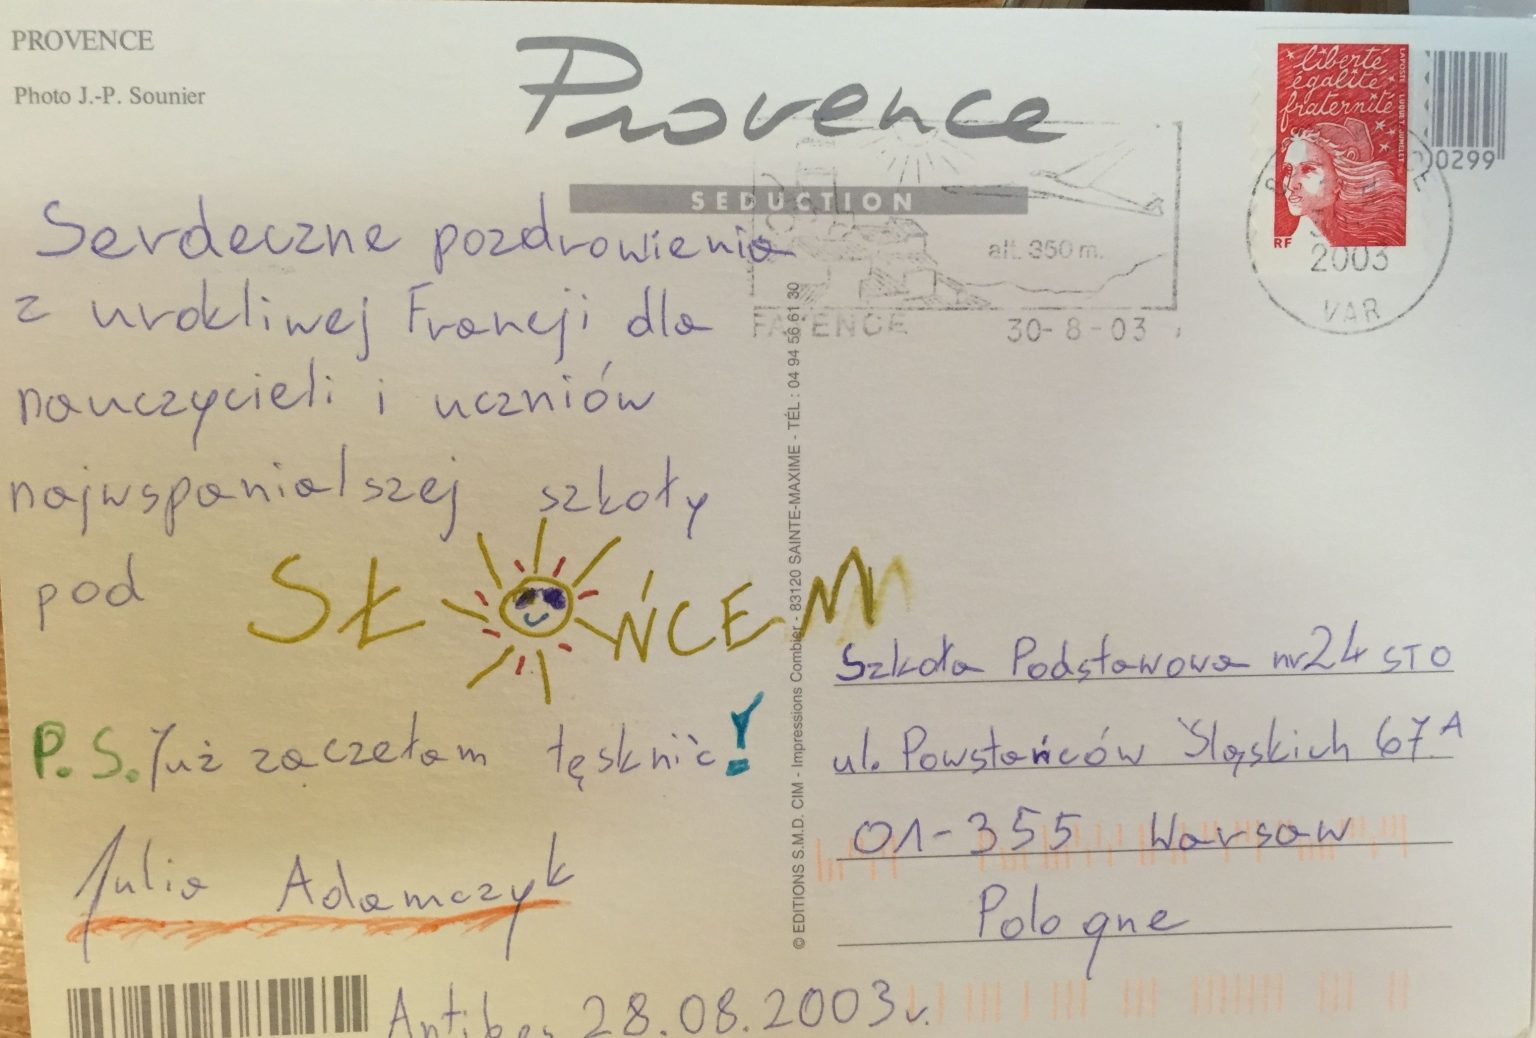 PROVENCE
Photo J.-P. Sounier
Provence
SEDUCTION
liberté
égalité
fraternité
LA POSTE LUQUET JUMELET
RF
0299
alt. 350 m.
FAYENCE 30-8-03
2003
VAR
Serdeczne pozdrowienia
z urokliwej Francji dla
nauczycieli i uczniów
najwspanialszej szkoły
pod SŁOŃCEM
P.S. Już zaczęłam tęsknić!
Julia Adamczyk
Antibes 28.08.2003r.
© EDITIONS S.M.D. CIM - Impressions Combier - 83120 SAINTE-MAXIME - TÉL : 04 94 56 61 30
Szkoła Podstawowa nr 24 STO
ul. Powstańców Śląskich 67A
01-355 Warsaw
Pologne